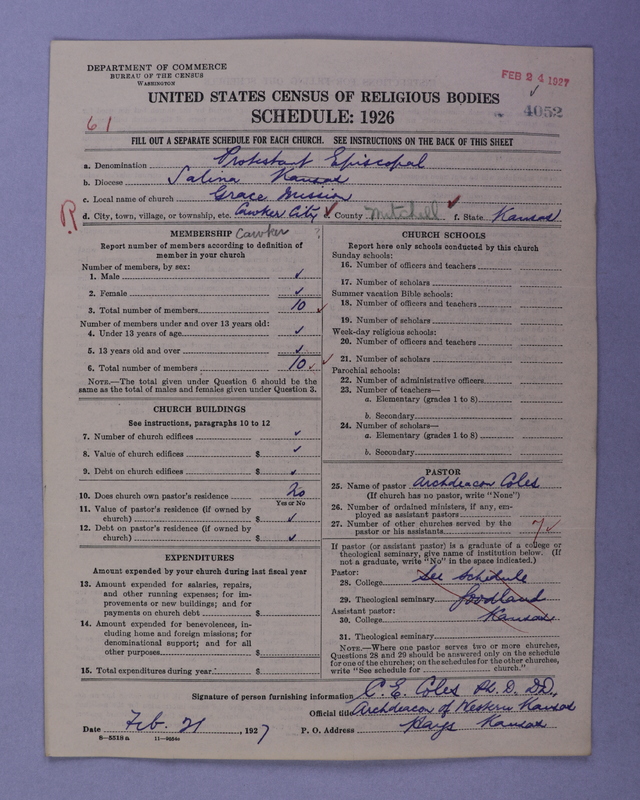 DEPARTMENT OF COMMERCE
BUREAU OF THE CENSUS
WASHINGTON
FEB 24 1927
UNITED STATES CENSUS OF RELIGIOUS BODIES
4052
SCHEDULE: 1926
61
FILL OUT A SEPARATE SCHEDULE FOR EACH CHURCH. SEE INSTRUCTIONS ON THE BACK OF THIS SHEET
a. Denomination Protestant Episcopal
b. Diocese Salina Kansas
c. Local name of church Grace Mission
R d. City, town, village, or township, etc. Cawker City County Mitchell f. State Kansas
MEMBERSHIP Cawker ?
Report number of members according to definition of
member in your church
Number of members, by sex:
1. Male ✓
2. Female ✓
3. Total number of members 10 ✓
Number of members under and over 13 years old:
4. Under 13 years of age ✓
5. 13 years old and over ✓
6. Total number of members 10 ✓
NOTE.—The total given under Question 6 should be the
same as the total of males and females given under Question 3.
CHURCH BUILDINGS
See instructions, paragraphs 10 to 12
7. Number of church edifices ✓
8. Value of church edifices $ ✓
9. Debt on church edifices $ ✓
10. Does church own pastor's residence No
Yes or No
11. Value of pastor's residence (if owned by
church) $ ✓
12. Debt on pastor's residence (if owned by
church) $ ✓
EXPENDITURES
Amount expended by your church during last fiscal year
13. Amount expended for salaries, repairs,
and other running expenses; for im-
provements or new buildings; and for
payments on church debt $
14. Amount expended for benevolences, in-
cluding home and foreign missions; for
denominational support; and for all
other purposes $
15. Total expenditures during year $
CHURCH SCHOOLS
Report here only schools conducted by this church
Sunday schools:
16. Number of officers and teachers
17. Number of scholars
Summer vacation Bible schools:
18. Number of officers and teachers
19. Number of scholars
Week-day religious schools:
20. Number of officers and teachers
21. Number of scholars
Parochial schools:
22. Number of administrative officers
23. Number of teachers—
a. Elementary (grades 1 to 8)
b. Secondary
24. Number of scholars—
a. Elementary (grades 1 to 8)
b. Secondary
PASTOR
25. Name of pastor Archdeacon Coles
(If church has no pastor, write "None")
26. Number of ordained ministers, if any, em-
ployed as assistant pastors
27. Number of other churches served by the
pastor or his assistants 7 ✓
If pastor (or assistant pastor) is a graduate of a college or
theological seminary, give name of institution below. (If
not a graduate, write "No" in the space indicated.)
Pastor:
28. College See Schedule
29. Theological seminary Goodland
Assistant pastor:
30. College Kansas
31. Theological seminary
NOTE.—Where one pastor serves two or more churches,
Questions 28 and 29 should be answered only on the schedule
for one of the churches; on the schedules for the other churches,
write "See schedule for church."
Signature of person furnishing information C. E. Coles Ph. D. DD.,
Official title Archdeacon of Western Kansas
Date Feb. 21, 1927 P. O. Address Hays Kansas
8—5518 a 11—9654